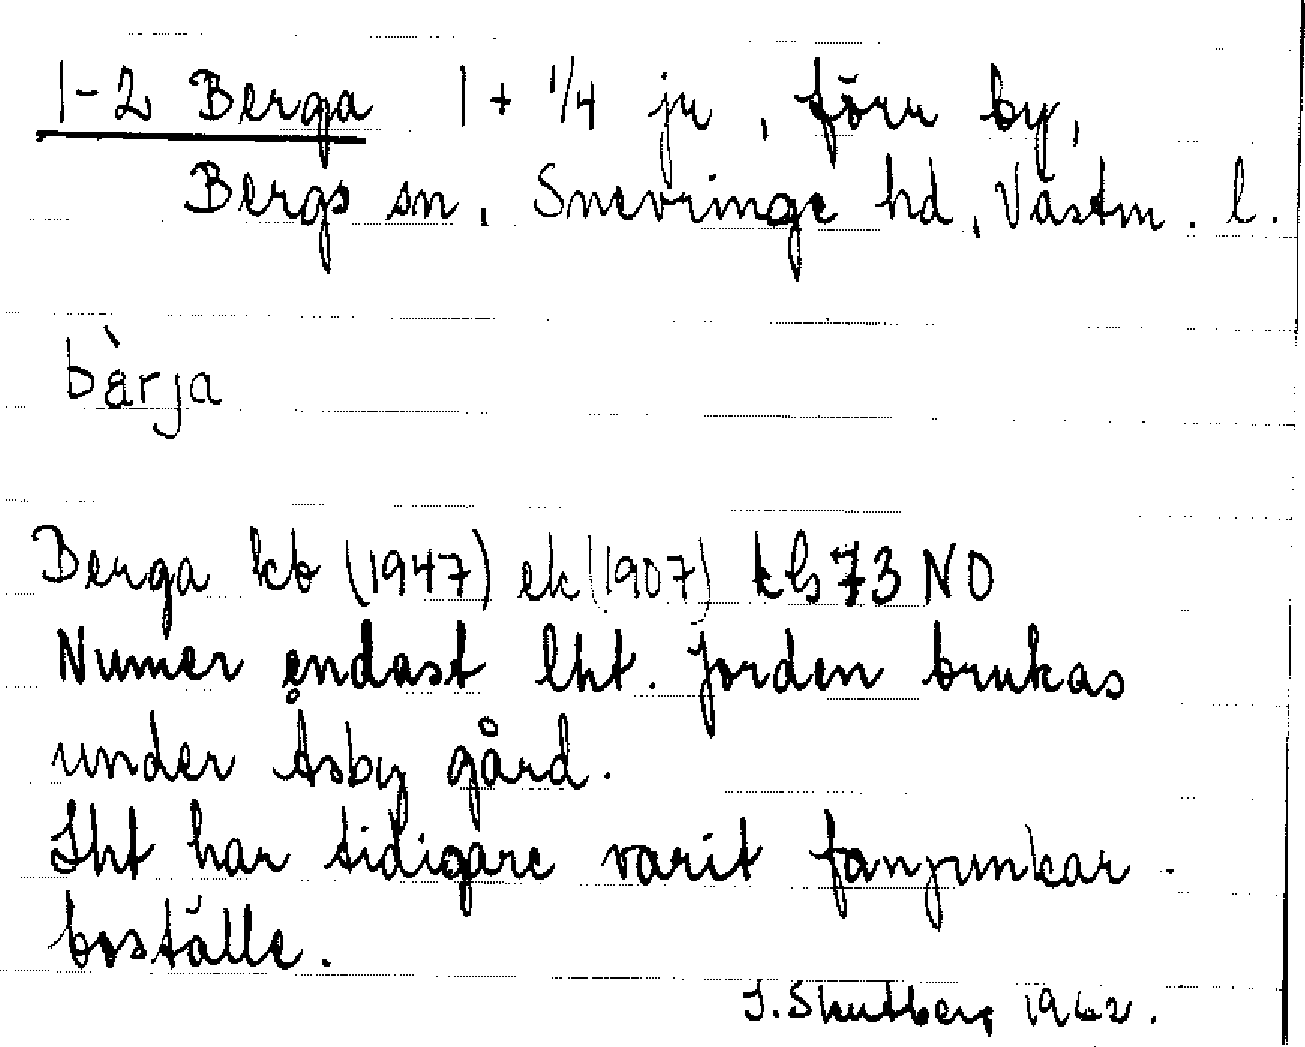 1-2 Berga 1 + 1/4 jr, förr by,
Bergs sn, Snevringe hd, Västm. l.
bàrja
Berga kb (1947) ek (1907) kbl 73 NO
Numer endast lht. Jorden brukas
under Åsby gård.
Lht har tidigare varit fanjunkar-
boställe.